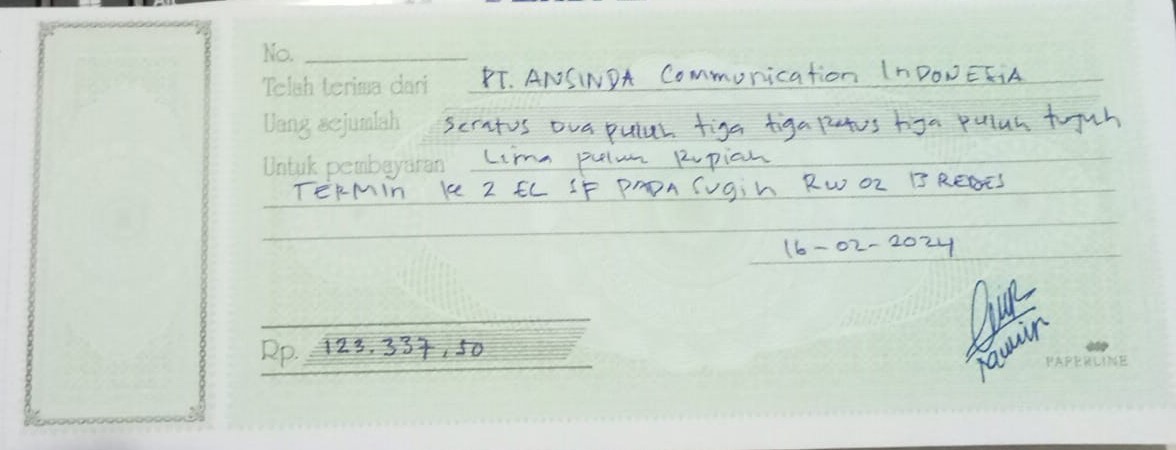 No.
Telah terima dari PT. ANSINDA Communication INDONESIA
Uang sejumlah Seratus Dua puluh tiga tiga Ratus tiga puluh tujuh
Untuk pembayaran Lima puluh Rupiah
TERMIN ke 2 EC SF PADA Sugih RW 02 BREBES
16-02-2024
Rp. 123.337,50
PAPERLINE